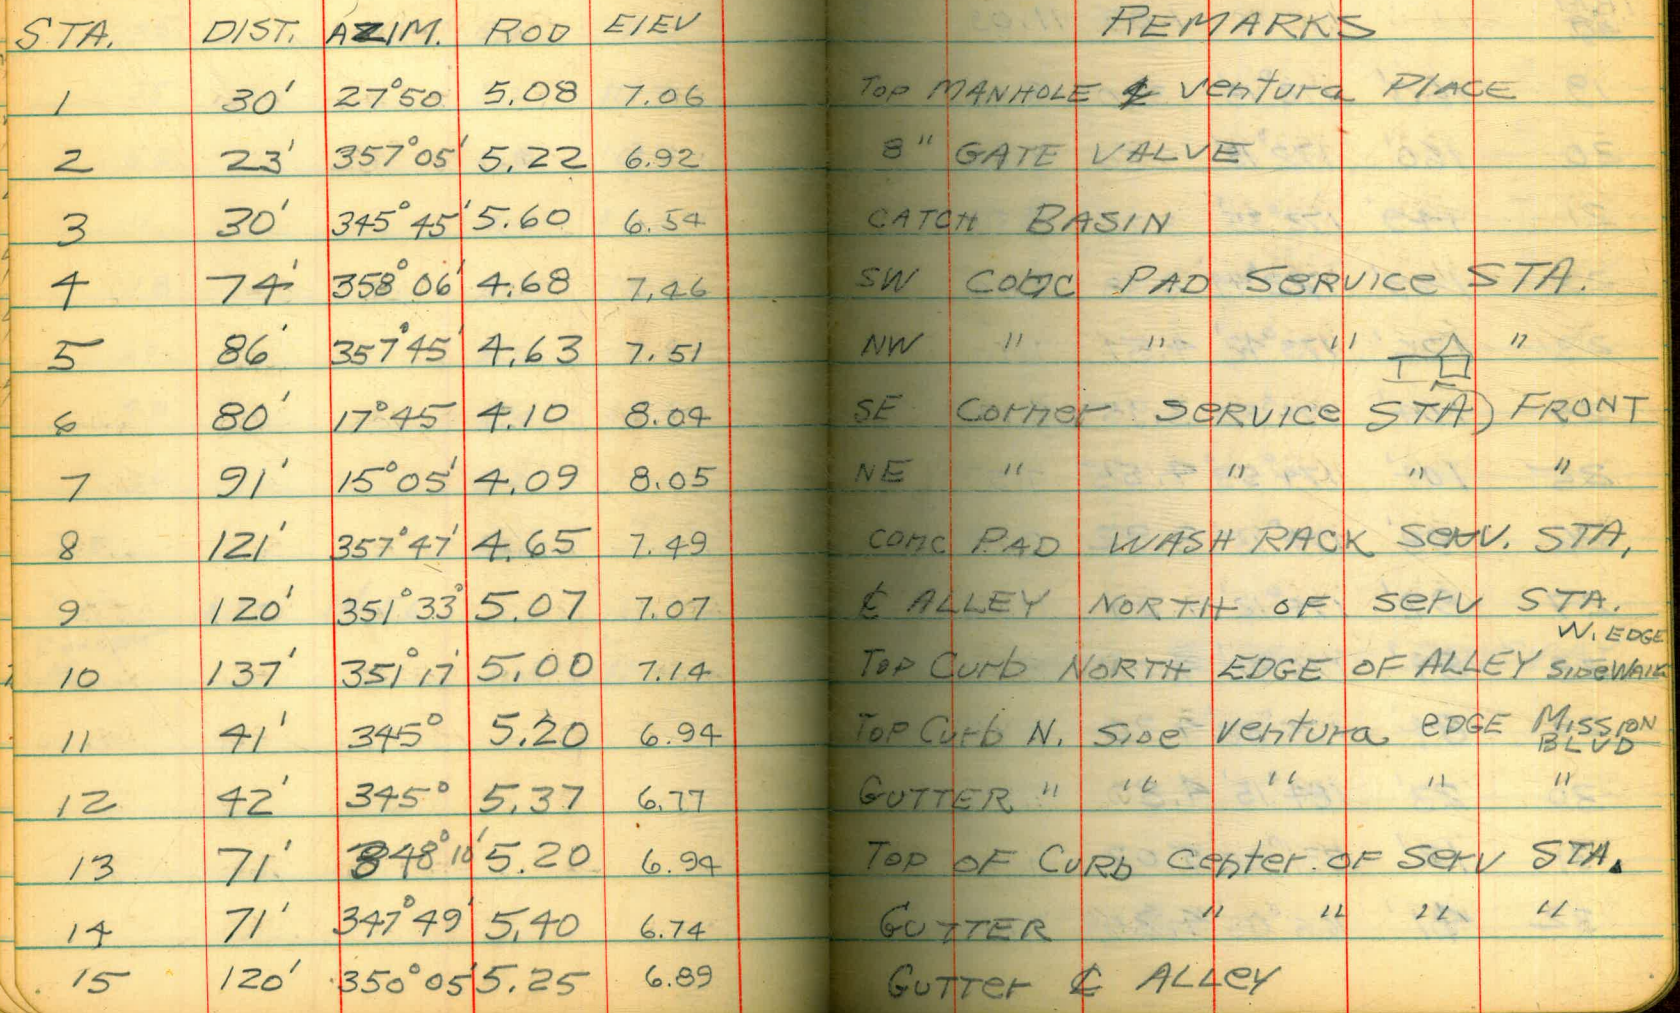 STA. DIST. AZIM. ROD ElEV REMARKS
1 30' 27°50 5.08 7.06 Top MANHOLE ℄ Ventura PlACE
2 23' 357°05' 5.22 6.92 8" GATE VALVE
3 30' 345°45' 5.60 6.54 CATCH BASIN
4 74' 358°06' 4.68 7.46 SW Conc PAD SERVICE STA.
5 86' 357°45' 4.63 7.51 NW " " " "
6 80' 17°45' 4.10 8.04 SE Corner SERVICE STA) FRONT
7 91' 15°05' 4.09 8.05 NE " " " "
8 121' 357°47' 4.65 7.49 conc PAD WASH RACK Serv. STA,
9 120' 351°33° 5.07 7.07 ℄ ALLEY NORTH OF Serv STA.
W. EDGE
10 137' 351°17' 5.00 7.14 Top Curb NORTH EDGE OF ALLEY SIDeWAlk
11 41' 345° 5.20 6.94 Top Curb N. Side Ventura EDGE MISSION
BLVD
12 42' 345° 5.37 6.77 GUTTER " " " " "
13 71' 348°10' 5.20 6.94 Top OF Curb Center OF Serv STA.
14 71' 347°49' 5.40 6.74 GUTTER " " " "
15 120' 350°05' 5.25 6.89 GuTTer ℄ ALLey